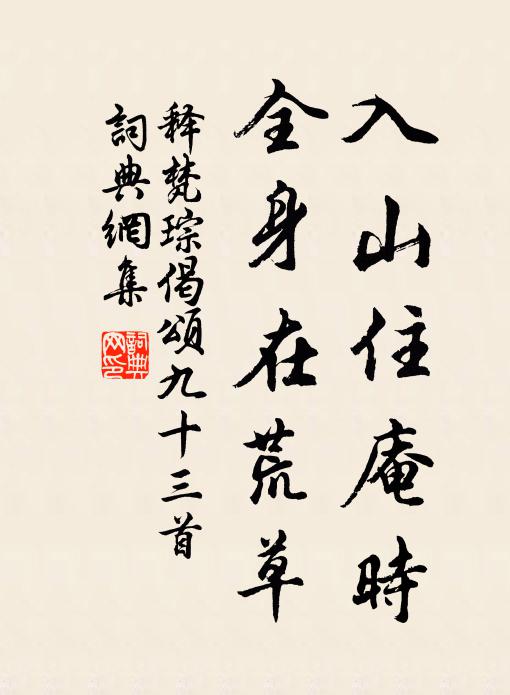 入山住庵時
全身在荒草
释梵琮偈頌九十三首
詞典網集
詞典
网印